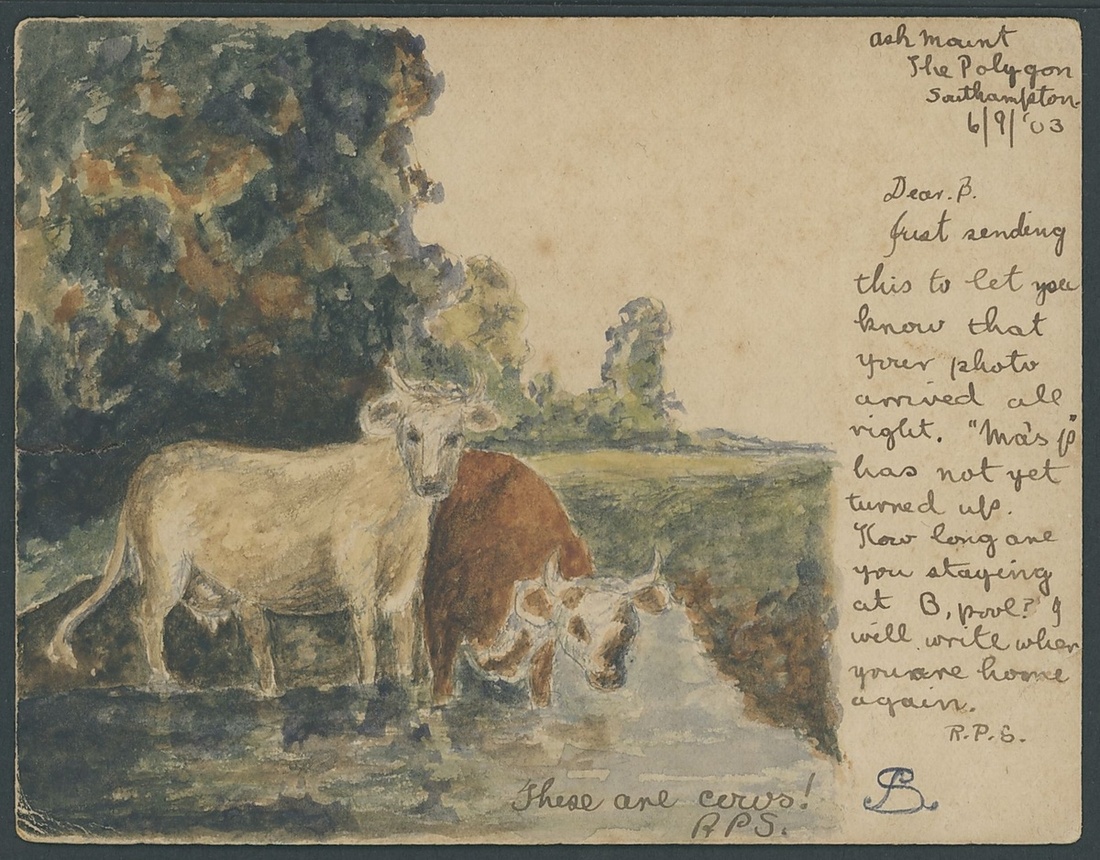 ash mount
The Polygon
Southampton.
6/9/'03
Dear. B.
Just sending
this to let you
know that
your photo
arrived all
right. "Ma's p"
has not yet
turned up.
How long are
you staying
at B, pool? I
will write when
you are home
again.
R.P.S.
These are cows!
R P S.